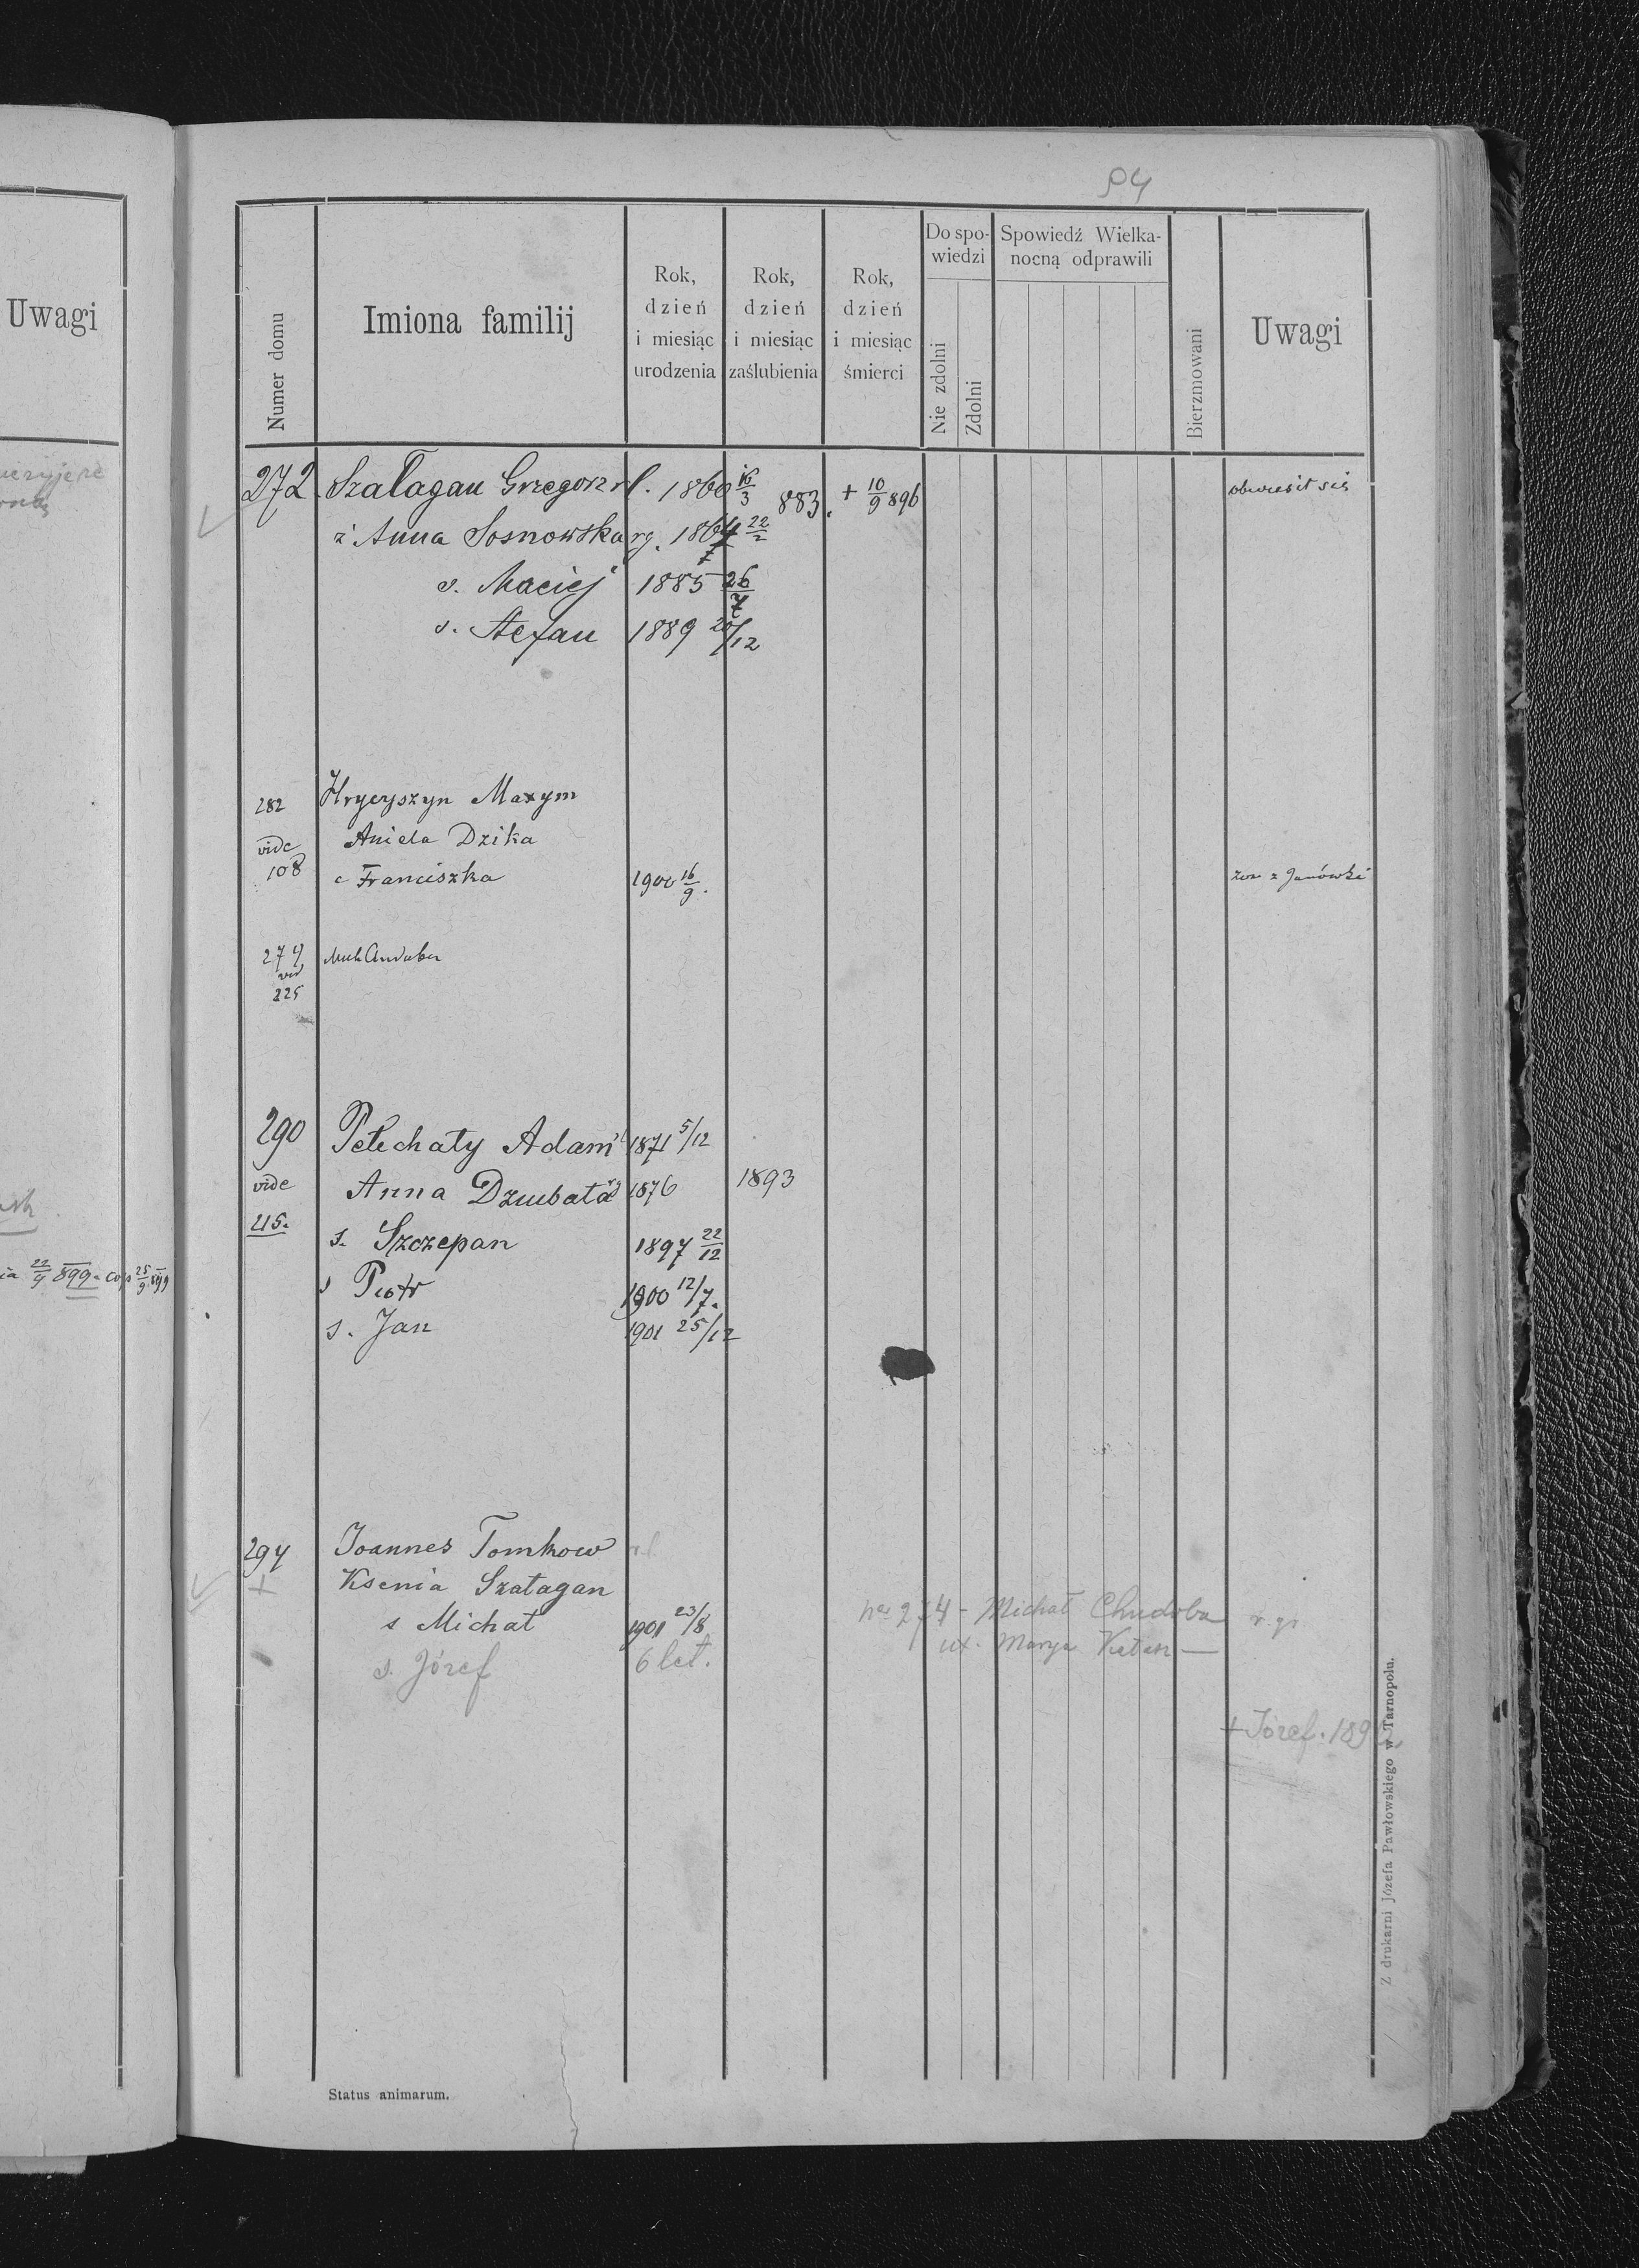 Uwagi
94
Numer domu
Imiona familij
Rok, dzień i miesiąc urodzenia
Rok, dzień i miesiąc zaślubienia
Rok, dzień i miesiąc śmierci
Do spo-wiedzi
Nie zdolni
Zdolni
Spowiedź Wielka-nocną odprawili
Bierzmowani
Uwagi
272. Szałagan Grzegorz rl. 1860 16/3 883. + 10/9 896 obwiesił się
ż Anna Sosnowska rg. 1864 22/2
s. Maciej 1885 26/7
s. Stefan 1889 20/12
282 Hryeyszyn Maxym
vide Aniela Dzika
108 c Franciszka 1900 16/9. z Janówki
274
vid
225
290 Pełechaty Adam rl 1871 5/12
vide Anna Dziubata rg 1876 1893
215. s. Szczepan 1897 22/12
s Piotr 1900 12/7.
s. Jan 1901 25/12
294 Joannes Tomkow rl.
+ Ksenia Szałagan
s Michał 1901 23/8
s. Józef 6 let.
nr 274 - Michał Chudoba r. gr
ux. Marya
+ Józef. 189
22/9 899. cop 25/9 899
Z drukarni Józefa Pawłowskiego w Tarnopolu.
Status animarum.